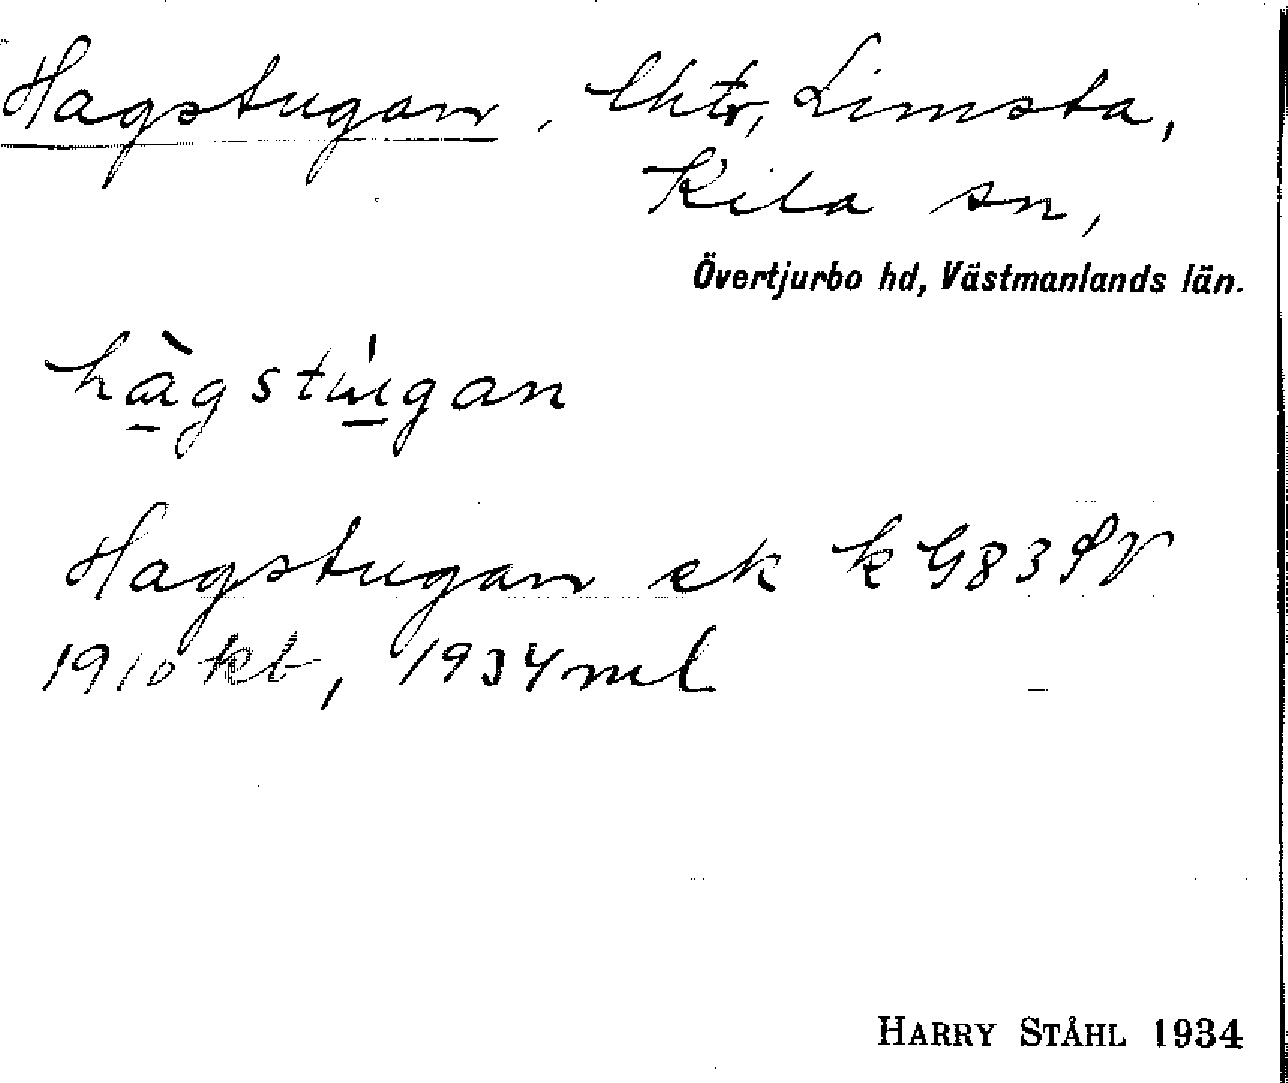 Hagstugan, lhtr, Limsta,
Kila sn,
Övertjurbo hd, Västmanlands län.
hàgstúgan
Hagstugan ek k G83 SV
1910 kb, 1934 ml
HARRY STÅHL 1934